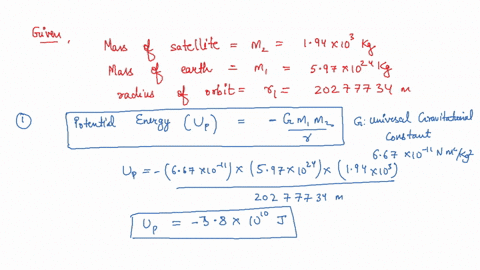 Given,
Mass of satellite = m₂ = 1.94 x 10³ Kg
Mass of earth = m₁ = 5.97 x 10²⁴ Kg
radius of orbit = r₁ = 20277734 m
① Potential Energy (Up) = - G m₁ m₂ / r
G: universal Gravitational Constant
6.67 x 10⁻¹¹ N m²/Kg²
Up = - (6.67 x 10⁻¹¹) x (5.97 x 10²⁴) x (1.94 x 10³)
20277734 m
Up = -3.8 x 10¹⁰ J